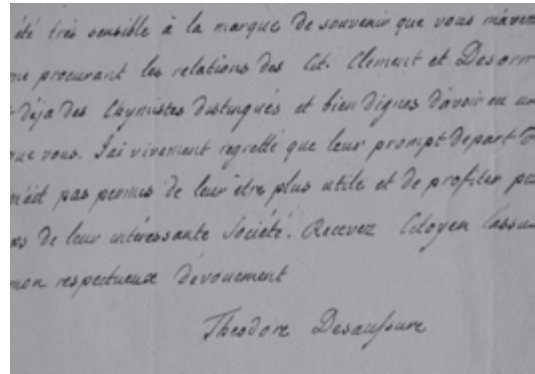 été très sensible à la marque de souvenir que vous m'avez
me procurant les relations des Cit. Clement et Desorm
déja des Chymistes distingués et bien dignes d'avoir eu un
que vous. J'ai vivement regretté que leur prompt depart
m'ait pas permis de leur être plus utile et de profiter
de leur intéressante Société. Recevez Citoyen l'assu
mon respectueux dévouement
Theodore Desaussure